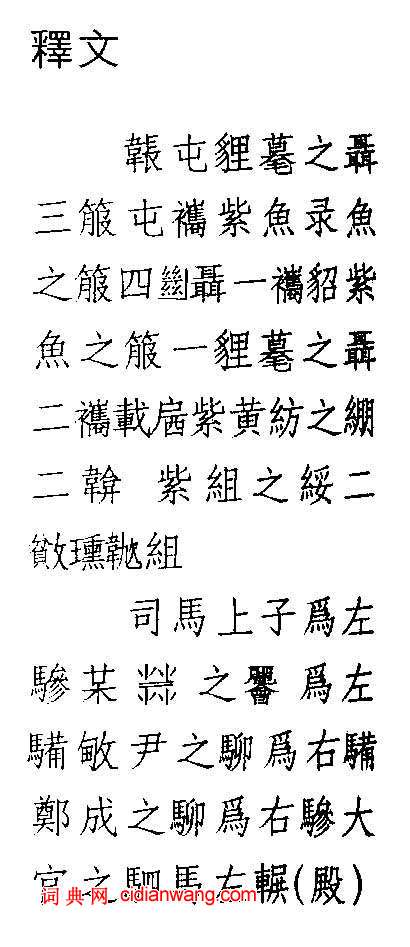 釋文
韔屯貍䙝之聶
三箙屯襱紫魚录魚
之箙四聶一襱貂紫
魚之箙一貍之聶
二襱載扂紫黄紡之繃
二 紫組之綏二
組
司馬上子爲左
驂某之爲左
䮛敏尹之騮爲右䮛
鄭成之騮爲右驂大
官之駟馬左(殿)
词典网 cidianwang.com